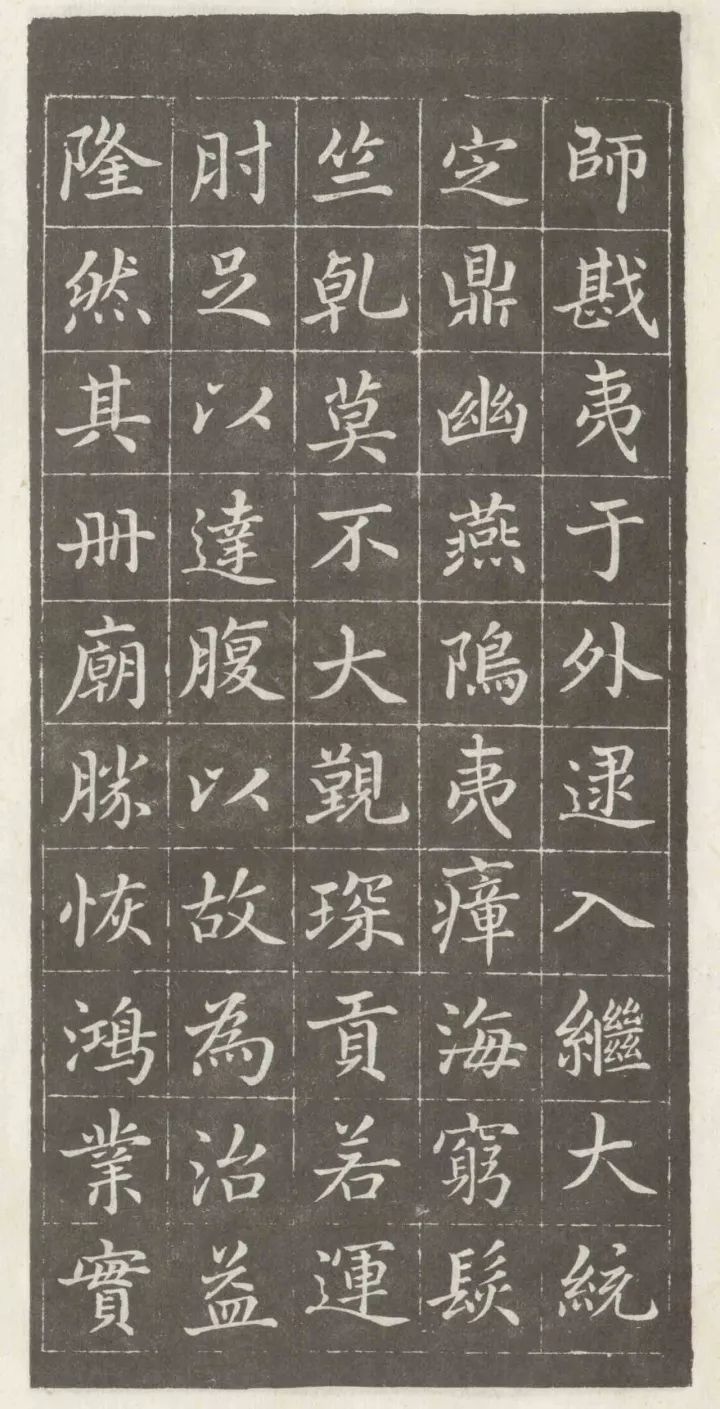 師戡夷于外逮入繼大統
定鼎幽燕隝夷瘴海窮髮
竺乹莫不大覲琛貢若運
肘足以達腹以故為治益
隆然其冊廟勝恢鴻業實